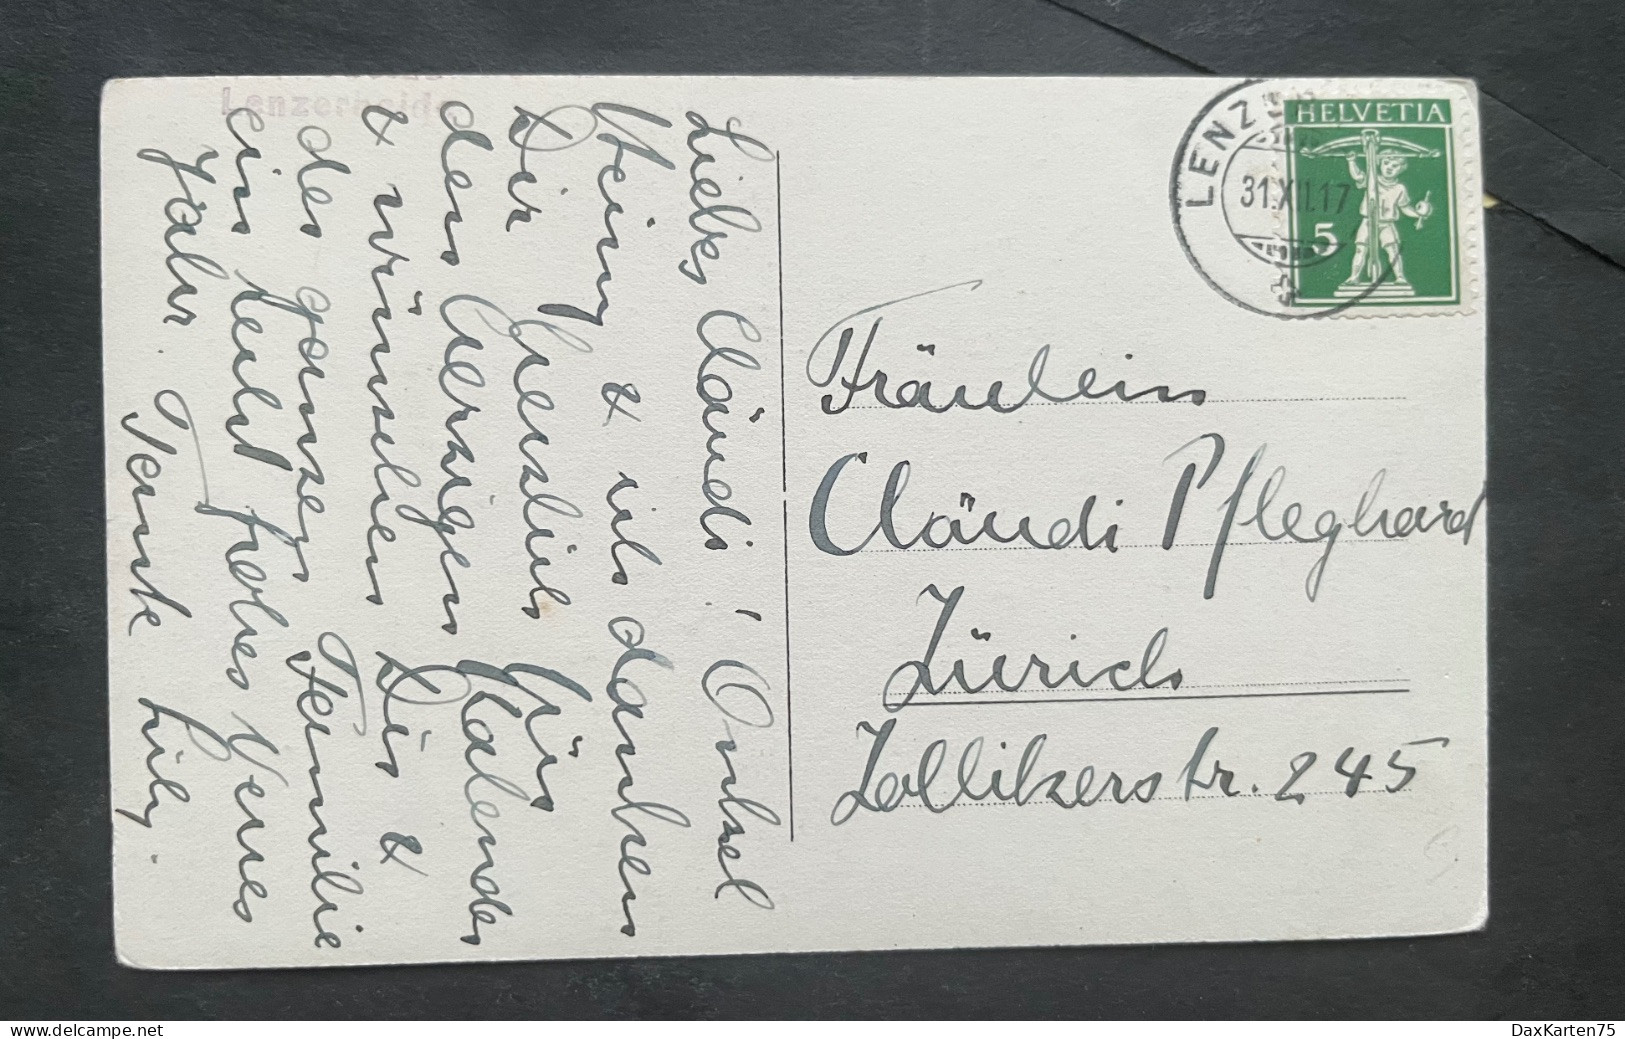 Lenzerheide
Liebes Cläudi! Onkel
Heiny & ich danken
Dir herzlich für
den herzigen Kalender
& wünschen Dir &
der ganzen Familie
ein recht frohes Neues
Jahr. Tante Lily.
LENZ
31.XII.17
HELVETIA
5
Fräulein
Cläudi Pfleghard
Zürich
Zollikerstr. 245
DaxKarten75
www.delcampe.net